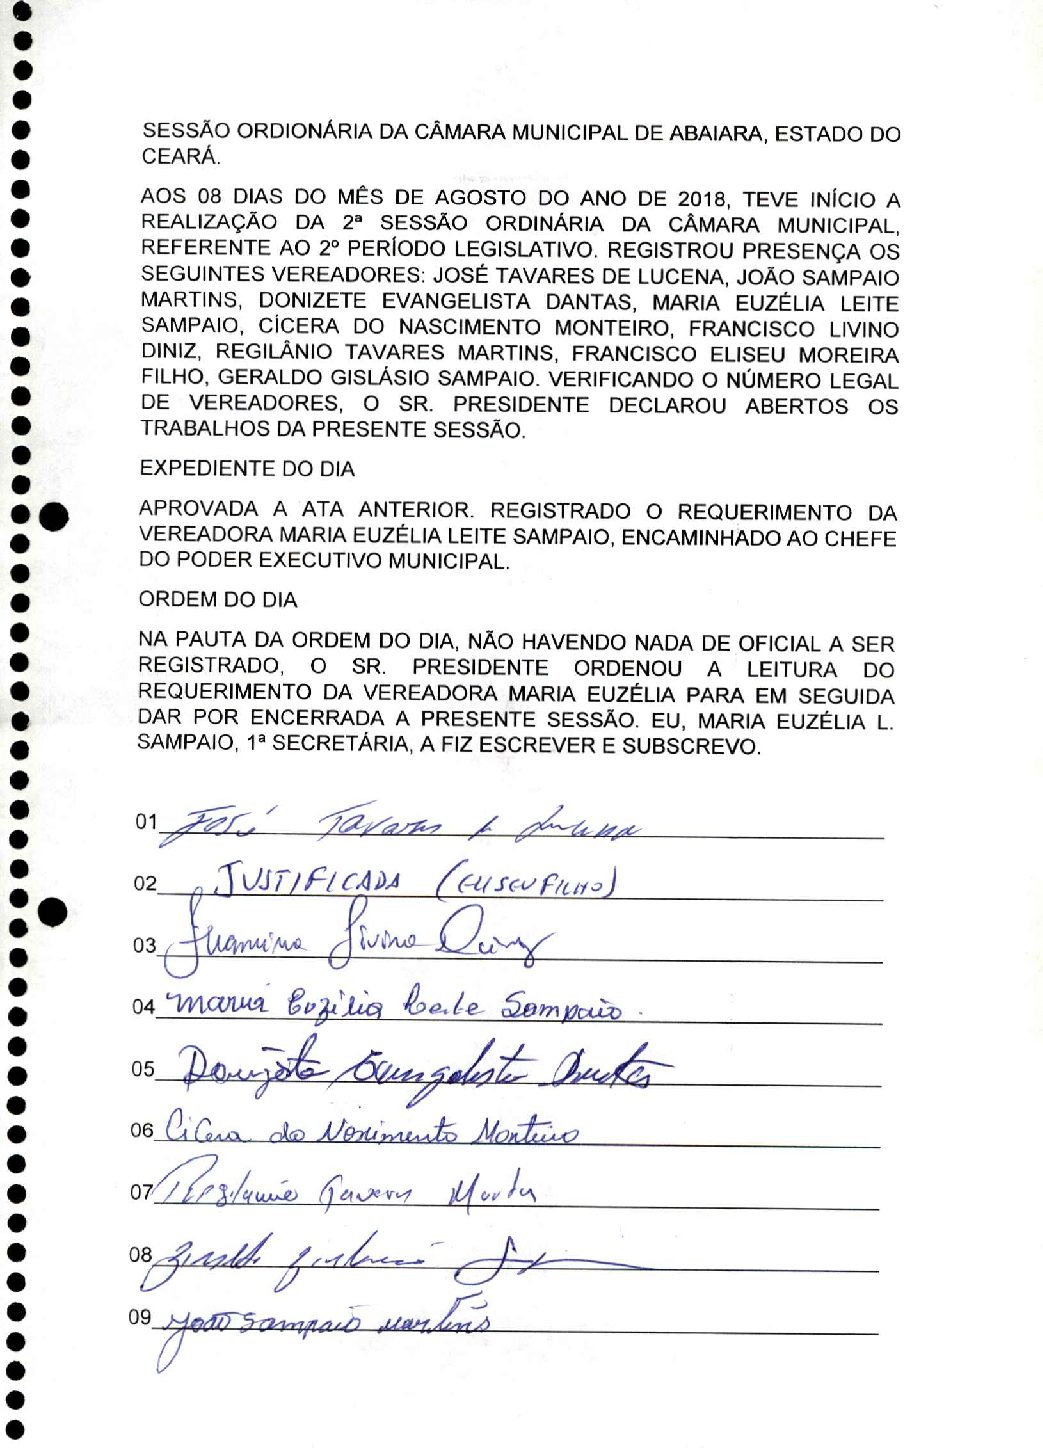 SESSÃO ORDIONÁRIA DA CÂMARA MUNICIPAL DE ABAIARA, ESTADO DO
CEARÁ.
AOS 08 DIAS DO MÊS DE AGOSTO DO ANO DE 2018, TEVE INÍCIO A
REALIZAÇÃO DA 2ª SESSÃO ORDINÁRIA DA CÂMARA MUNICIPAL,
REFERENTE AO 2º PERÍODO LEGISLATIVO. REGISTROU PRESENÇA OS
SEGUINTES VEREADORES: JOSÉ TAVARES DE LUCENA, JOÃO SAMPAIO
MARTINS, DONIZETE EVANGELISTA DANTAS, MARIA EUZÉLIA LEITE
SAMPAIO, CÍCERA DO NASCIMENTO MONTEIRO, FRANCISCO LIVINO
DINIZ, REGILÂNIO TAVARES MARTINS, FRANCISCO ELISEU MOREIRA
FILHO, GERALDO GISLÁSIO SAMPAIO. VERIFICANDO O NÚMERO LEGAL
DE VEREADORES, O SR. PRESIDENTE DECLAROU ABERTOS OS
TRABALHOS DA PRESENTE SESSÃO.
EXPEDIENTE DO DIA
APROVADA A ATA ANTERIOR. REGISTRADO O REQUERIMENTO DA
VEREADORA MARIA EUZÉLIA LEITE SAMPAIO, ENCAMINHADO AO CHEFE
DO PODER EXECUTIVO MUNICIPAL.
ORDEM DO DIA
NA PAUTA DA ORDEM DO DIA, NÃO HAVENDO NADA DE OFICIAL A SER
REGISTRADO, O SR. PRESIDENTE ORDENOU A LEITURA DO
REQUERIMENTO DA VEREADORA MARIA EUZÉLIA PARA EM SEGUIDA
DAR POR ENCERRADA A PRESENTE SESSÃO. EU, MARIA EUZÉLIA L.
SAMPAIO, 1ª SECRETÁRIA, A FIZ ESCREVER E SUBSCREVO.
01 José Tavares de Lucena
02 JUSTIFICADA (ELISEU FILHO)
03 Livino Diniz
04 Maria Euzélia Leite Sampaio
05 Donizete Evangelista Dantas
06 Cicera do Nascimento Monteiro
07 Regilânio Tavares Martins
08
09 João Sampaio Martins